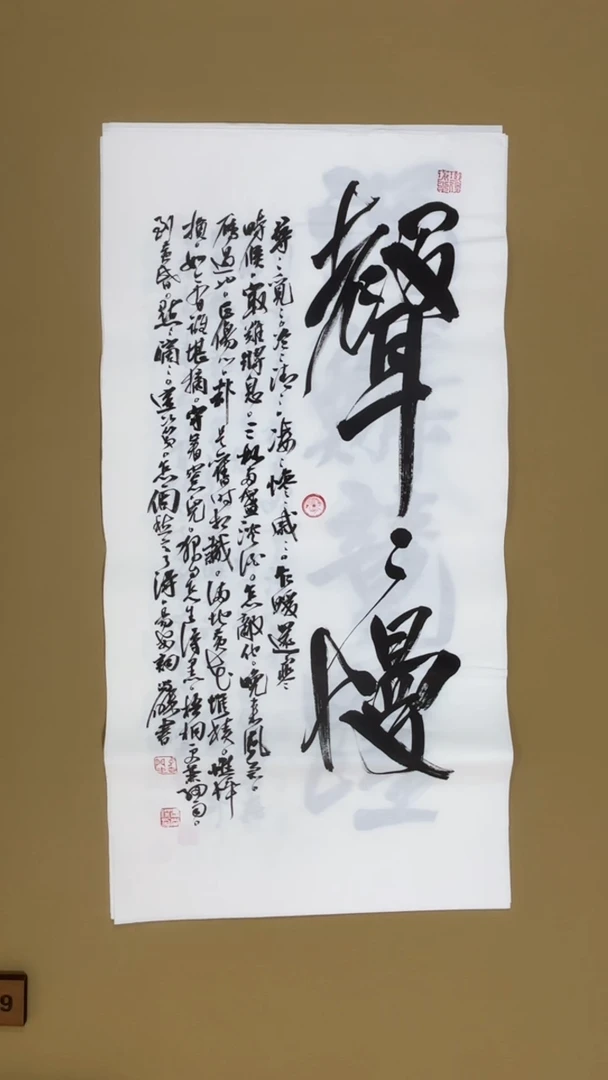 聲〻慢
尋〻覓〻。冷〻清〻。凄〻慘〻戚〻。乍暖還寒
時候。最難將息。三杯兩盞淡酒。怎敵他。晚來風急。
雁過也。正傷心。卻是舊時相識。滿地黃花堆積。憔悴
損。如今有誰堪摘。守著窓兒。獨自怎生得黑。梧桐更兼細雨。
到黃昏。點〻滴〻。這次第。怎個愁字了得。易安詞 書
9